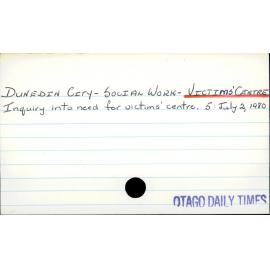 DUNEDIN CITY - SOCIAL WORK - VICTIMS' CENTRE
Inquiry into need for victims' centre. 5: July 2, 1980.
OTAGO DAILY TIMES